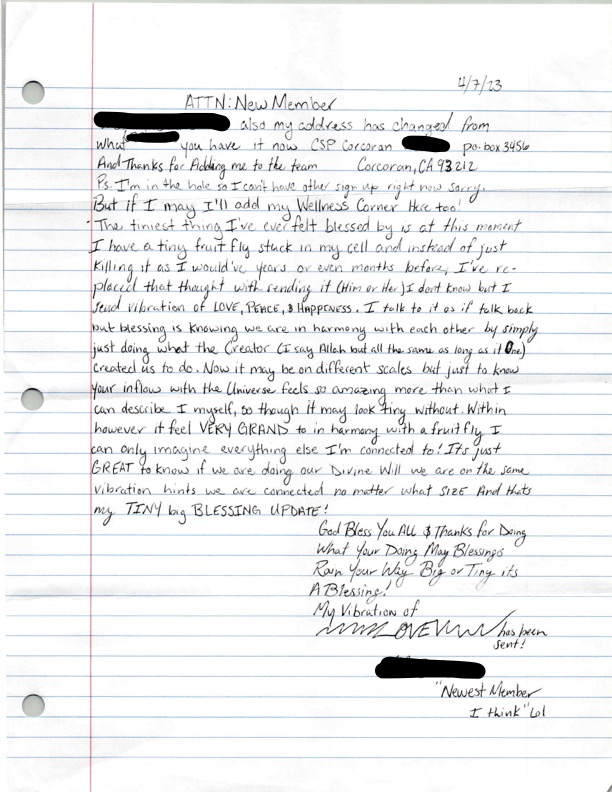 4/7/23
ATTN: New Member
also my address has changed from
what you have it now CSP Corcoran po. box 3456
And Thanks for Adding me to the team Corcoran, CA 93212
Ps. I'm in the hole so I can't have other sign up right now sorry.
But if I may I'll add my Wellness Corner Here too!
The tiniest thing I've ever felt blessed by is at this moment
I have a tiny fruit fly stuck in my cell and instead of just
killing it as I would've years or even months before, I've re-
placed that thought with sending it (Him or Her) I dont know but I
send vibration of LOVE, PEACE, & HAPPINESS. I talk to it as if talk back
but blessing is knowing we are in harmony with each other by simply
just doing what the Creator (I say Allah but all the same as long as it One)
created us to do. Now it may be on different scales but just to know
your inflow with the Universe feels so amazing more than what I
can describe I myself, so though it may look tiny without. Within
however it feel VERY GRAND to in harmony with a fruit fly I
can only imagine everything else I'm connected to! Its just
GREAT to know if we are doing our Divine Will we are on the same
vibration hints we are connected no matter what SIZE And thats
my TINY big BLESSING UPDATE!
God Bless You ALL & Thanks for Doing
What Your Doing May Blessings
Rain Your Way Big or Tiny its
A Blessing!
My Vibration of
LOVE has been
sent!
"Newest Member
I think" lol